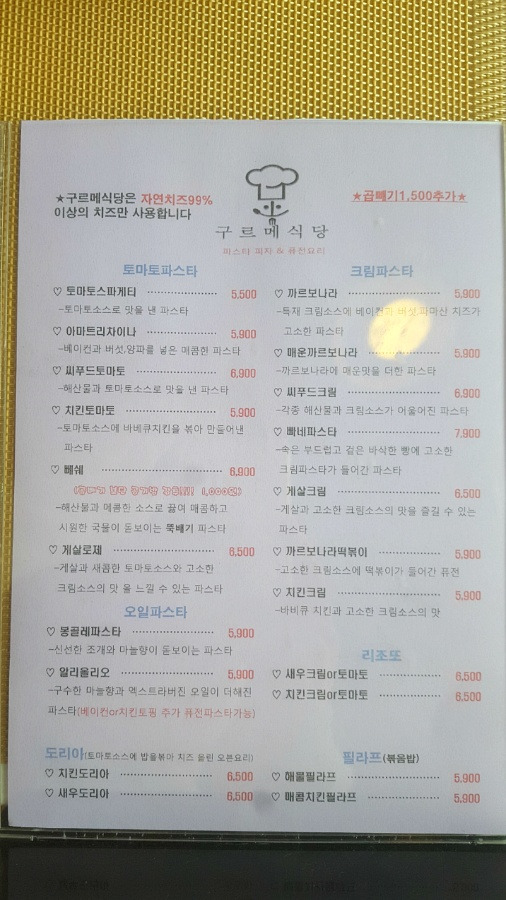 ★구르메식당은 자연치즈99%
이상의 치즈만 사용합니다
구르메식당
파스타 피자 & 퓨전요리
★곱빼기1,500추가★
토마토파스타
♡ 토마토스파게티 5,500
-토마토소스로 맛을 낸 파스타
♡ 아마트리차이나 5,900
-베이컨과 버섯,양파를 넣은 매콤한 파스타
♡ 씨푸드토마토 6,900
-해산물과 토마토소스로 맛을 낸 파스타
♡ 치킨토마토 5,900
-토마토소스에 바베큐치킨을 볶아 만들어낸
파스타
♡ 뻬쉐 6,900
1,000원)
-해산물과 매콤한 소스로 끓여 매콤하고
시원한 국물이 돋보이는 뚝배기 파스타
♡ 게살로제 6,500
-게살과 새콤한 토마토소스와 고소한
크림소스의 맛 을 느낄 수 있는 파스타
오일파스타
♡ 봉골레파스타 5,900
-신선한 조개와 마늘향이 돋보이는 파스타
♡ 알리올리오 5,900
-구수한 마늘향과 엑스트라버진 오일이 더해진
파스타(베이컨or치킨토핑 추가 퓨전파스타가능)
도리아(토마토소스에 밥을볶아 치즈 올린 오븐요리)
♡ 치킨도리아 6,500
♡ 새우도리아 6,500
크림파스타
♡ 까르보나라 5,900
-특재 크림소스에 베이컨과 버섯,파마산 치즈가
고소한 파스타
♡ 매운까르보나라 5,900
-까르보나라에 매운맛을 더한 파스타
♡ 씨푸드크림 6,900
-각종 해산물과 크림소스가 어울어진 파스타
♡ 빠네파스타 7,900
-속은 부드럽고 겉은 바삭한 빵에 고소한
크림파스타가 들어간 파스타
♡ 게살크림 6,500
-게살과 고소한 크림소스의 맛을 즐길 수 있는
파스타
♡ 까르보나라떡볶이 5,900
-고소한 크림소스에 떡볶이가 들어간 퓨전
♡ 치킨크림 5,900
-바비큐 치킨과 고소한 크림소스의 맛
리조또
♡ 새우크림or토마토 6,500
♡ 치킨크림or토마토 6,500
필라프(볶음밥)
♡ 해물필라프 5,900
♡ 매콤치킨필라프 5,900